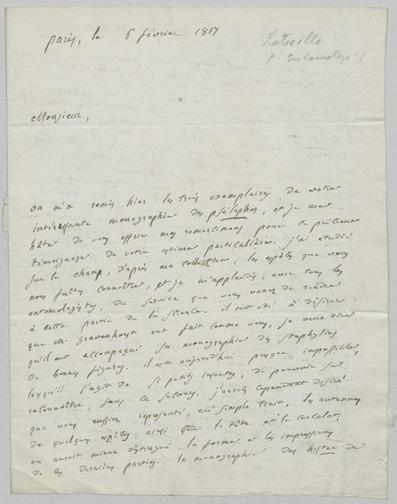 Paris, le 6 février 1817
Latreille
(Entomolog.)
Monsieur,
on m'a remis hier les trois exemplaires de votre
intéressante monographie des psélaphes, et je me
hâte de vous offrir mes remerciemens pour le précieux
témoignage de votre estime particulière. j'ai étudié
sur le champ, d'après ma collection, les espèces que vous
nous faites connoître, et je m'applaudis, avec tous les
entomologistes, du service que vous venez de rendre
à cette partie de la science. il eut été à désirer
que m. gravenhorst eut fait comme vous, je veux dire
qu'il eut accompagné sa monographie des staphylins
de bonnes figures. il est aujourd'hui presque impossible,
lorsqu'il s'agit de si petits insectes, de pouvoir les
reconnoître, sans ce secours. j'aurois cependant désiré
que vous eussiez représenté, au simple trait, les antennes
de quelques espèces, ainsi que la tête et le corcelet;
on auroit mieux distingué la forme et les impressions
de ces dernières parties. la monographie des hister de